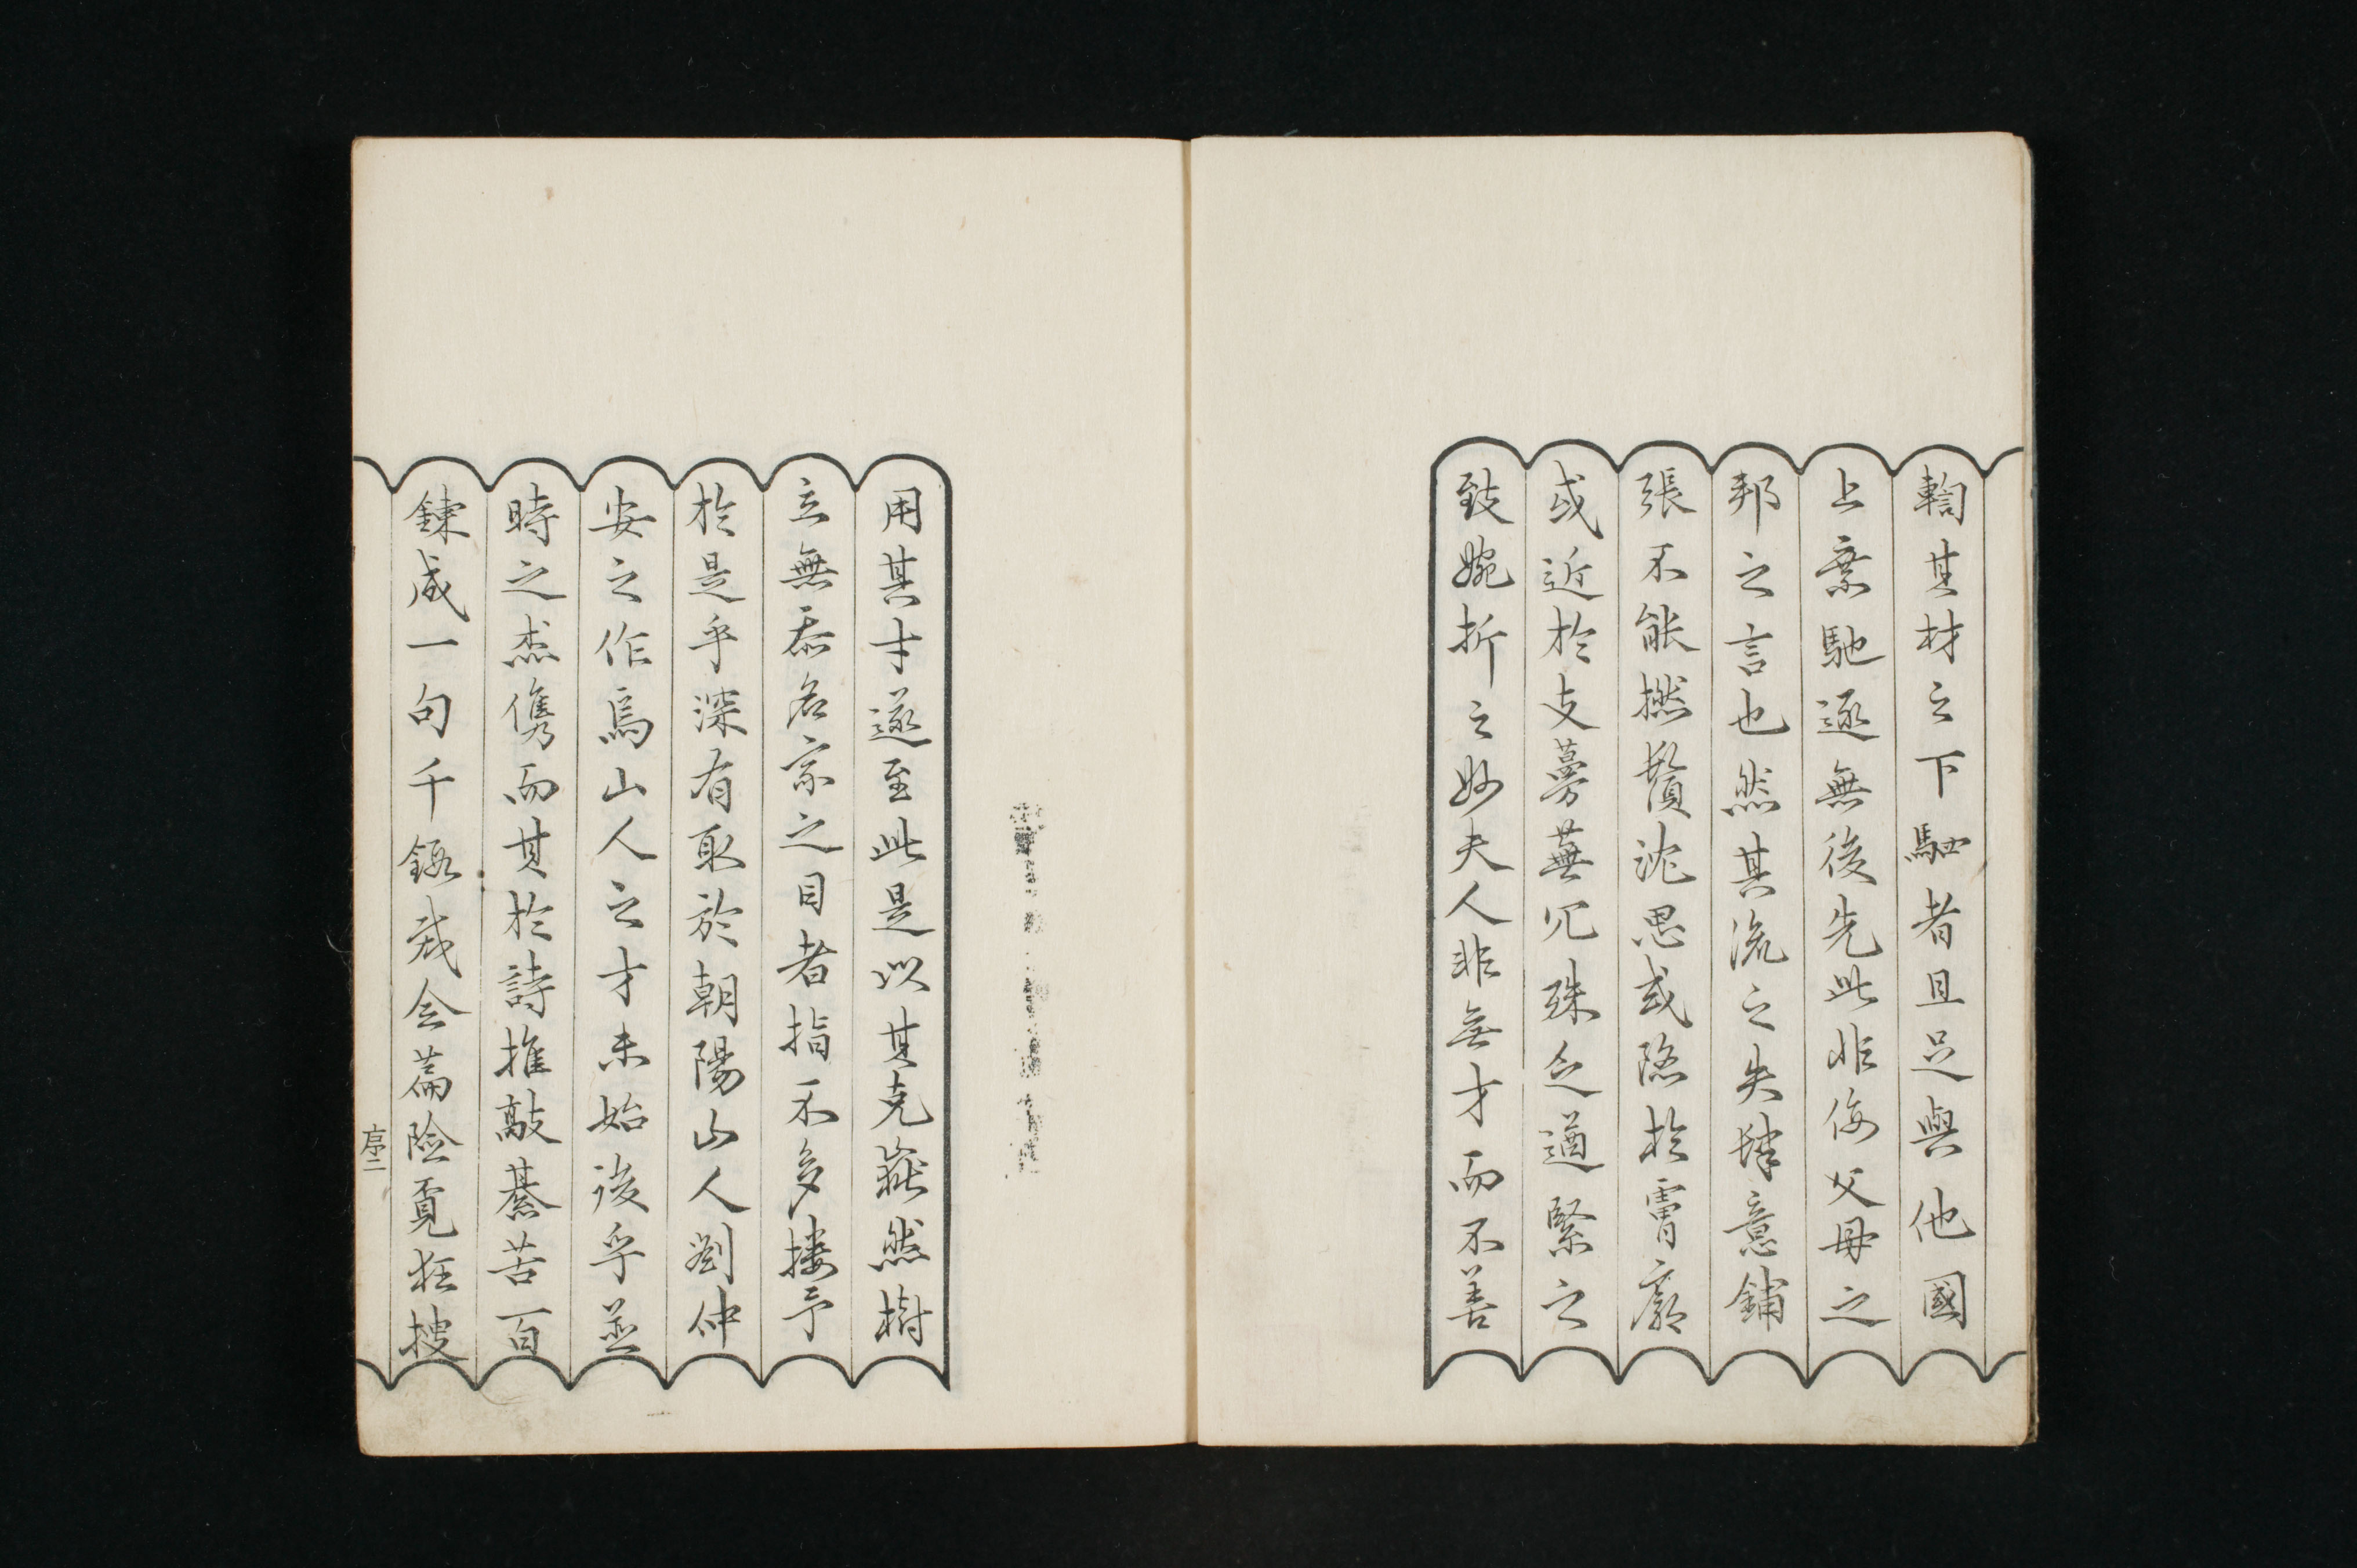 其材之下駟者且足與他國
上乘馳逐無後先此非侮父母之
邦之言也然其流之失肆意鋪
張不能撚鬚沈思或隘於霄廓
或近於支蔓蕪冗殊乏遒緊之
致婉折之妙夫人非無才而不善
用其才遂至此是以其克嶷然樹
立無忝名家之目者指不多摟予
於是乎深有取於朝陽山人劉仲
安之作焉山人之才未始後乎並
時之杰雋而其於詩推敲綦苦百
鍊成一句千鍛裁全篇險覓狂搜
序二